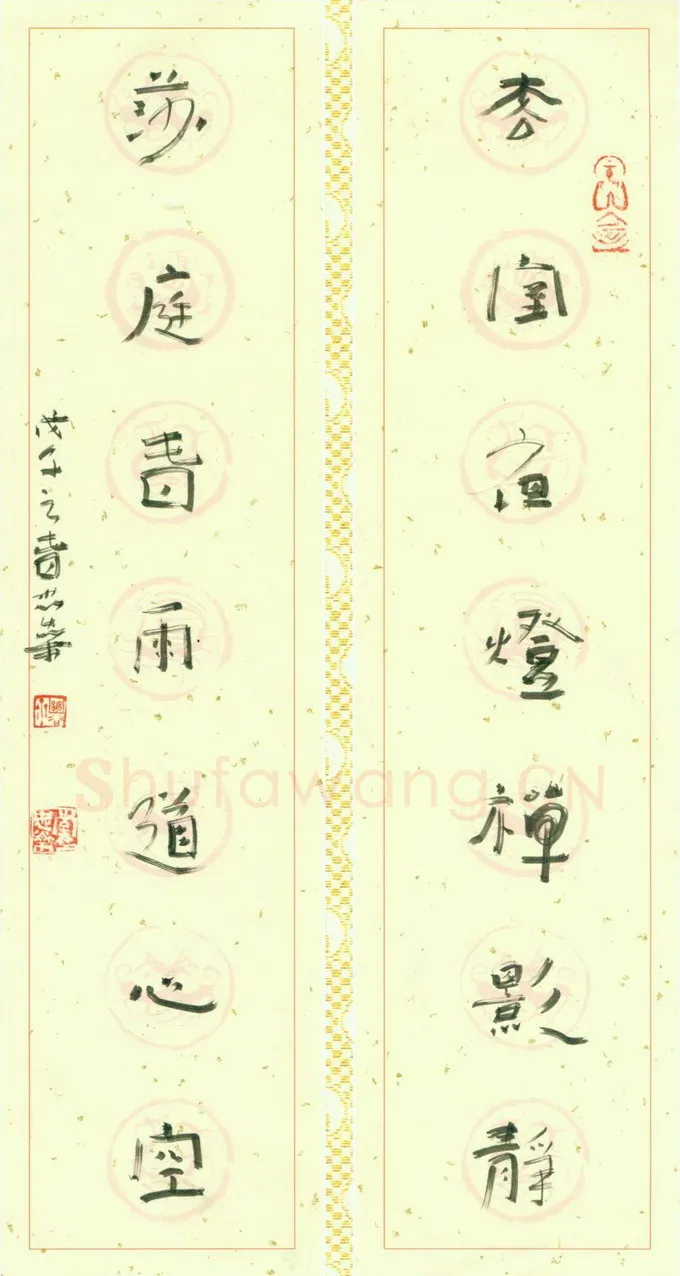 枩室亱燈禪影靜
莎庭春雨道心空
戊子之春華
Shufawang.CN